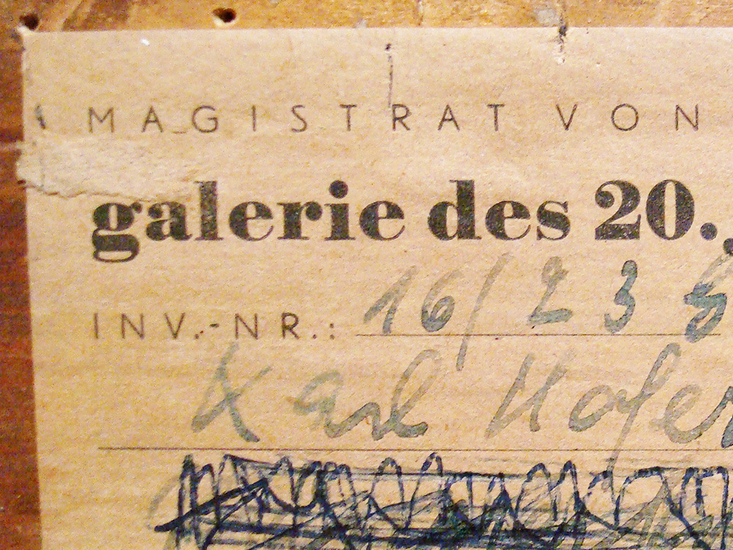 MAGISTRAT VON
galerie des 20.
INV.-NR.: 16/238
Karl Hofer